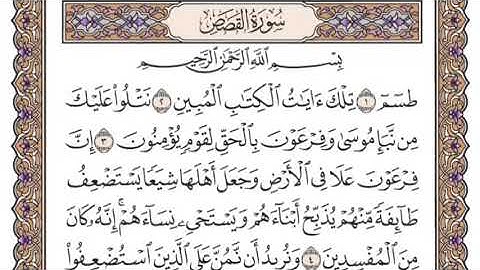 سُورَةُ القَصَصِ
بِسْمِ ٱللَّهِ ٱلرَّحْمَٰنِ ٱلرَّحِيمِ
طسٓمٓ ١ تِلْكَ ءَايَٰتُ ٱلْكِتَٰبِ ٱلْمُبِينِ ٢ نَتْلُوا۟ عَلَيْكَ
مِن نَّبَإِ مُوسَىٰ وَفِرْعَوْنَ بِٱلْحَقِّ لِقَوْمٍ يُؤْمِنُونَ ٣ إِنَّ
فِرْعَوْنَ عَلَا فِى ٱلْأَرْضِ وَجَعَلَ أَهْلَهَا شِيَعًا يَسْتَضْعِفُ
طَآئِفَةً مِّنْهُمْ يُذَبِّحُ أَبْنَآءَهُمْ وَيَسْتَحْىِۦ نِسَآءَهُمْ ۚ إِنَّهُۥ كَانَ
مِنَ ٱلْمُفْسِدِينَ ٤ وَنُرِيدُ أَن نَّمُنَّ عَلَى ٱلَّذِينَ ٱسْتُضْعِفُوا۟